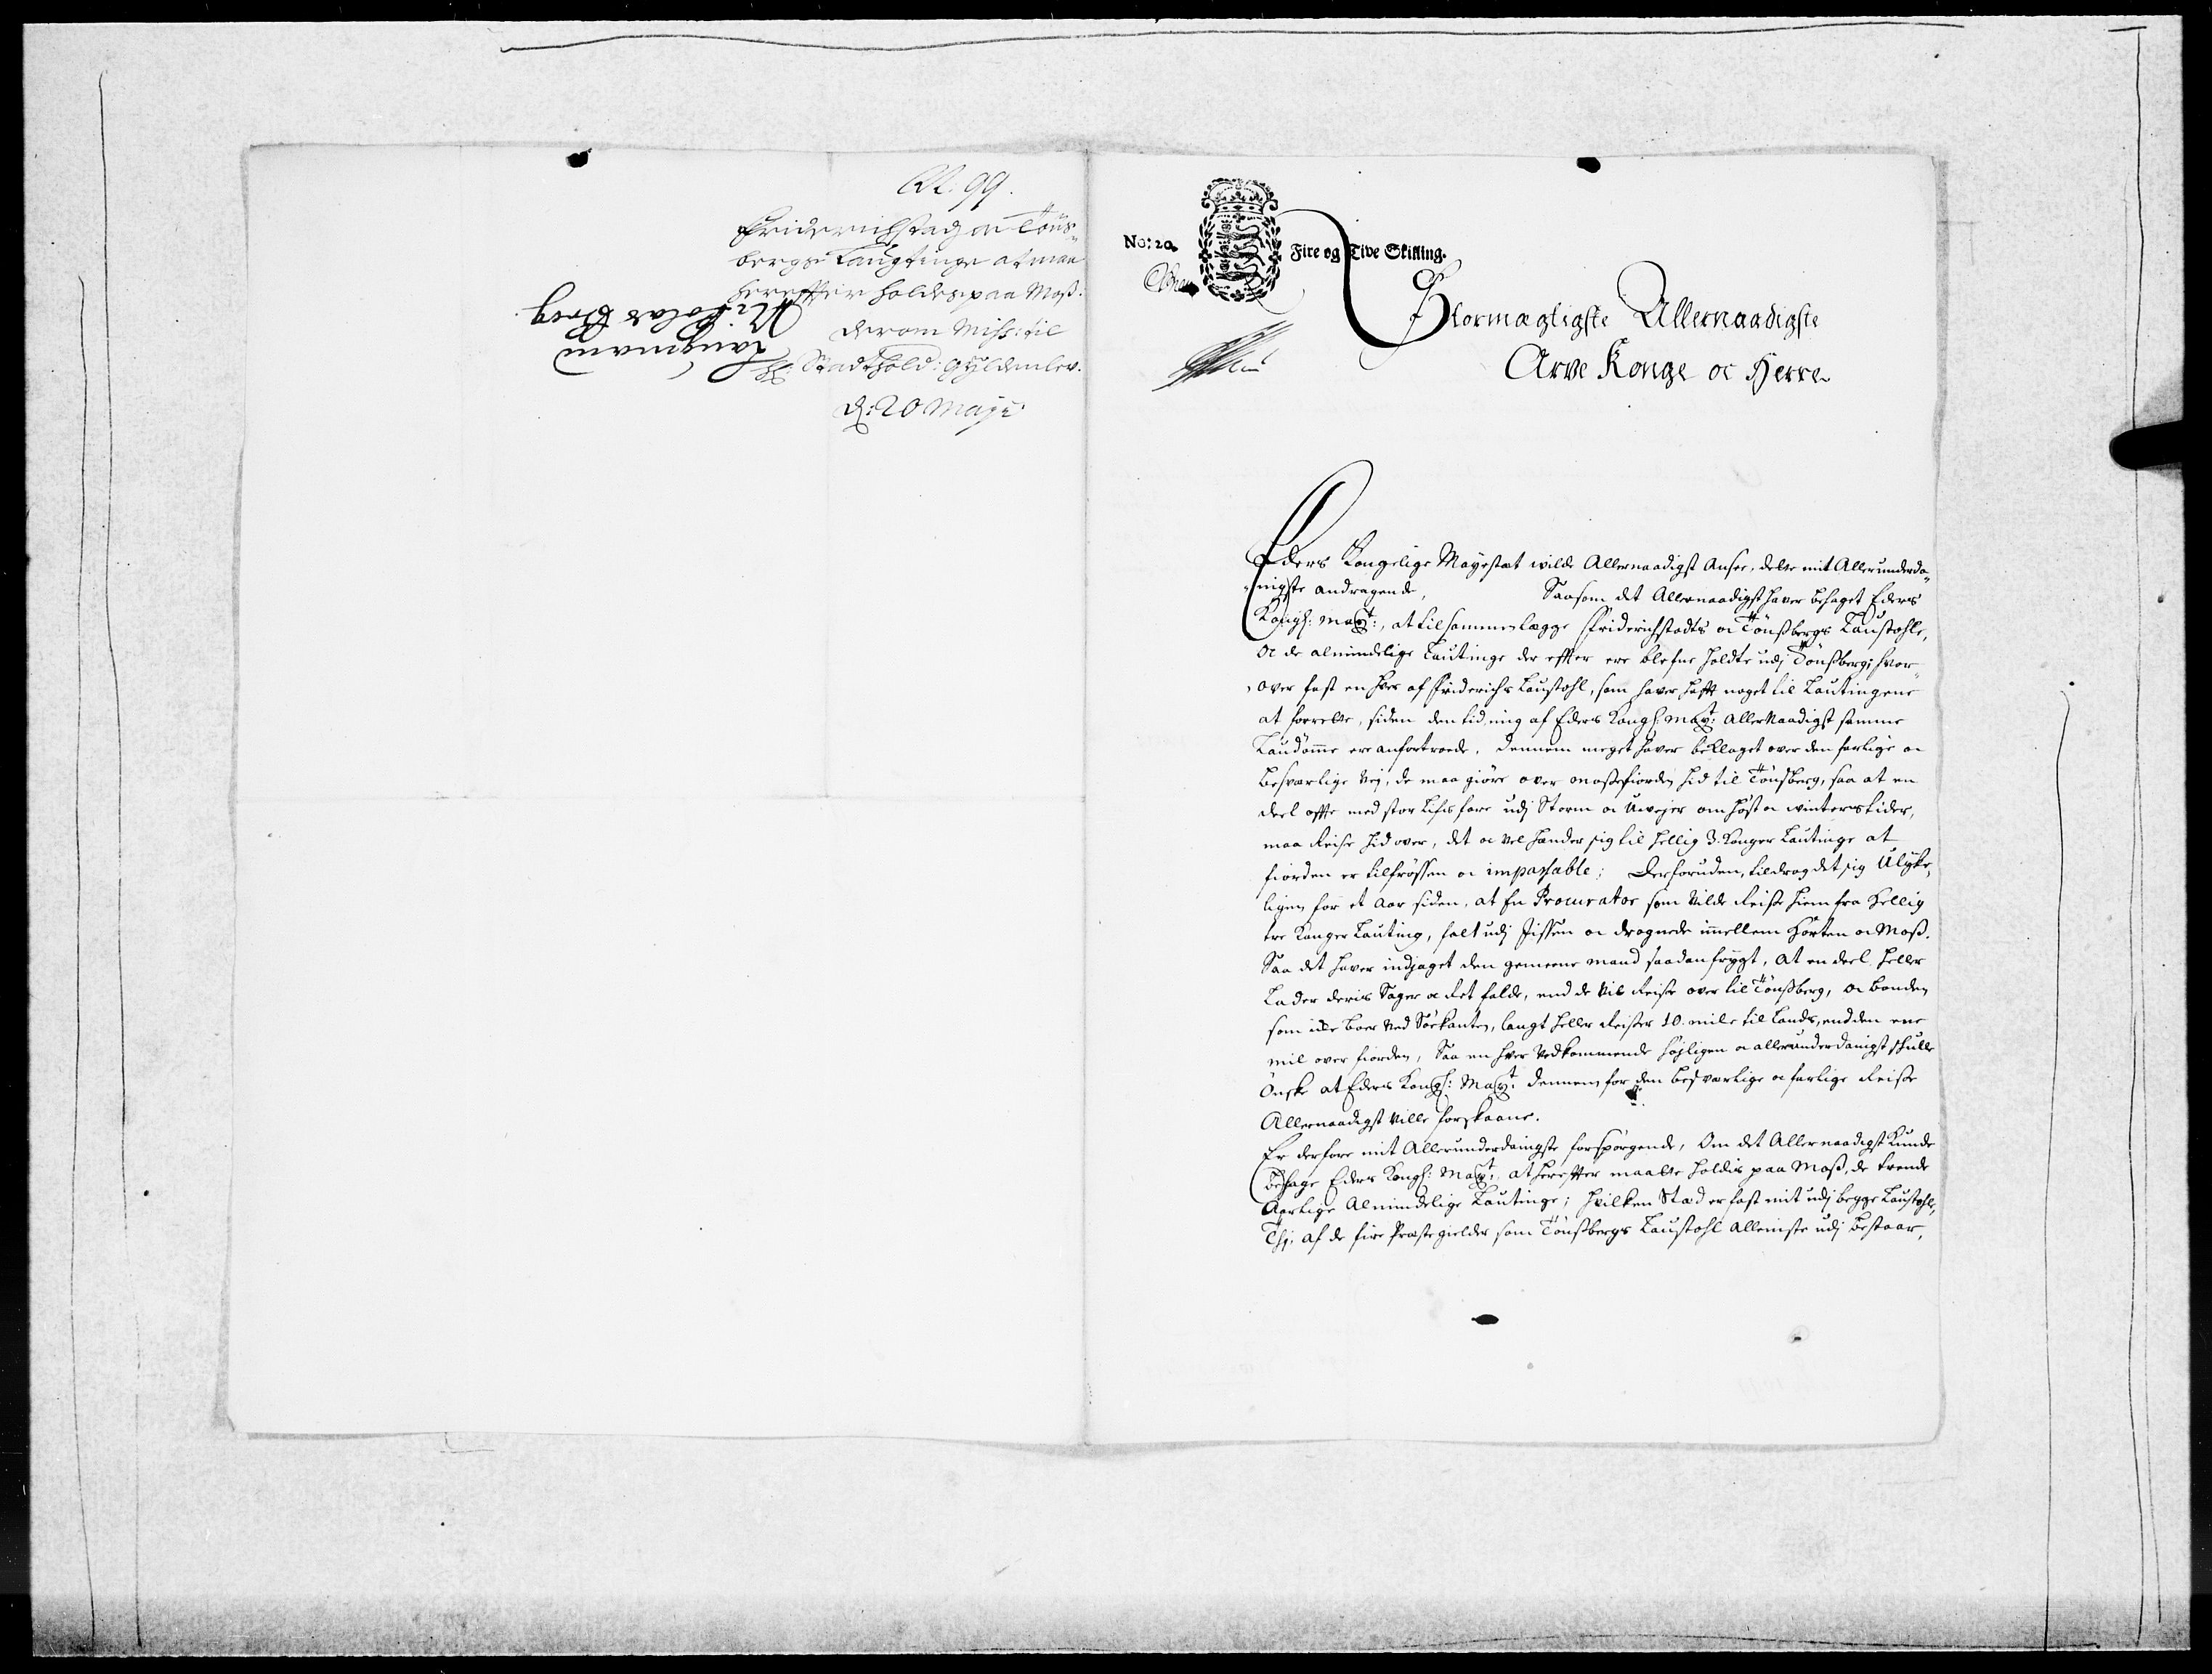 No: 99.
Friderichstad oc Töns-
bergs Laugtinge at maa
hereffter holdes paa Moss.
derom Miss: til
H: Stadthold: Gyldenlev.
d: 20 Maji
Laugmann
Nicolas Borg
No: 20
Fire og Tive Skilling.
Stormægtigste Allernaadigste
Arve Konge oc Herre
Eders Kongelige Mayestæt wilde Allernaadigst Ansee, dette mit Allerunderda-
nigste andragende, Saasom det Allernaadigst haver behaget Eders
Kongl: Mayt:, at tilsammenlægge Friderichstadts oc Tönsbergs Laustohle,
Oc de almindelige Lautinge der effter ere blefne holdte udj Tönsberg; hvor-
over fast en hver af Friderichs Laustohl, som haver hafft noget til Lautingene
at forrette, siden den tid mig af Eders Kongl: Mayt: Allernaadigst samme
Laudömme ere anfortroede, dennem meget haver beklaget over den farlige oc
besværlige Vej, de maa giöre over Mossefiorden hid til Tönsberg, saa at en
deel offte med stor Lifsfare udj Storm oc Uvejer om höst oc winterstider,
maa Reise hid over, det oc vel hænder sig til hellig 3. Konger Lautinge at
fiorden er tilfrössen oc impassable; Derforuden, tildrog det sig Ulyke-
ligen for et Aar siden, at En Procurator som Vilde Reise hiem fra Hellig
tre Konger Lauting, falt udj Jissen oc drognede imellem Horten oc Moss.
Saa det haver indjaget den gemeene mand saadan frygt, At en deel heller
Lader deris Sager oc Ret falde, end de Vil Reise over til Tönsberg, oc bonden
som icke boer Ved Söekanten, langt heller Reiser 10. mile til Lands, end den ene
mil over fiorden, Saa en hver Vedkommende höjligen oc allerunderdanigst schulle
Önske at Eders Kongl: Mayt: dennem for den besværlige oc farlige Reise
Allernaadigst Ville forskaane.
Er derfore mit Allerunderdanigste forspörgende, Om det Allernaadigst Kunde
behage Eders Kongl: Mayt: at hereffter maatte holdis paa Moss, de trende
Aarlige Almindelige Lautinge; hvilken Stæd er fast mit udj begge Laustohle,
Thj. af de fire Præstegielder som Tönsbergs Laustohl Alleniste udj bestaar,